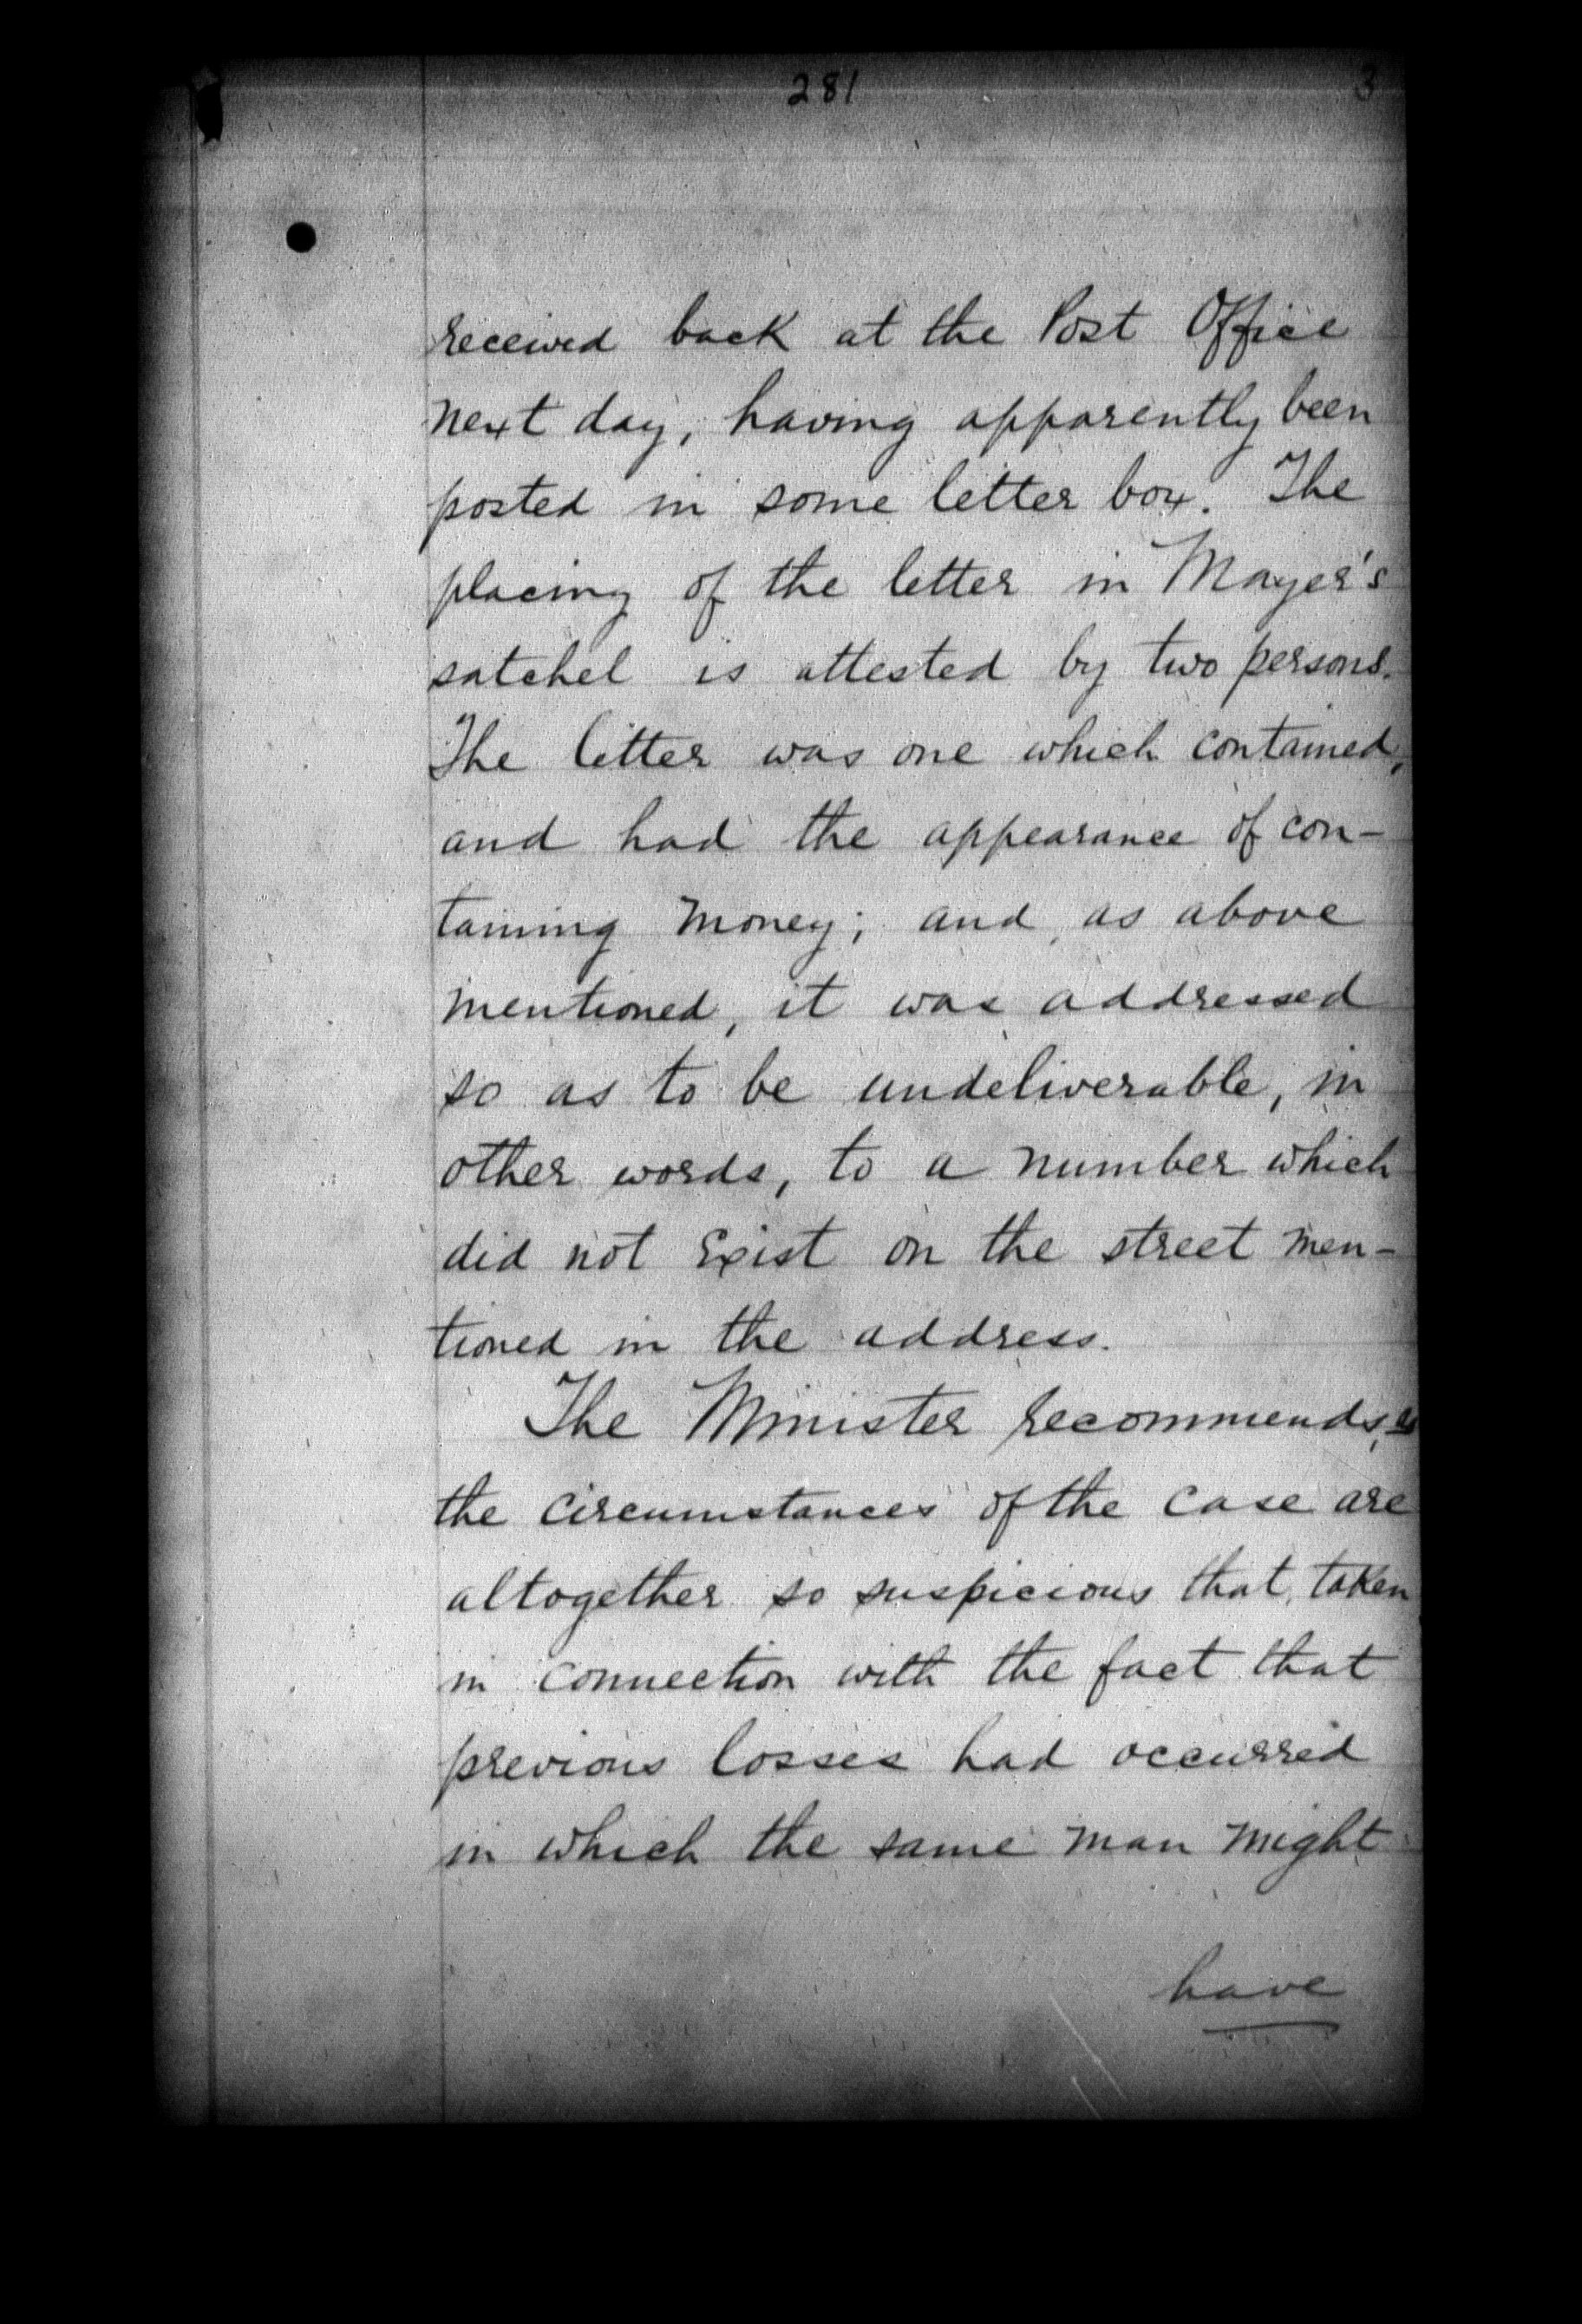 281 3
received back at the Post Office
next day, having apparently been
posted in some letter box. The
placing of the letter in Mayer's
satchel is attested by two persons.
The letter was one which contained,
and had the appearance of con-
taining money; and, as above
mentioned, it was addressed
so as to be undeliverable, in
other words, to a number which
did not exist on the street men-
tioned in the address.
The Minister recommends, as
the circumstances of the case are
altogether so suspicious that, taken
in connection with the fact that
previous losses had occurred
in which the same man might
have